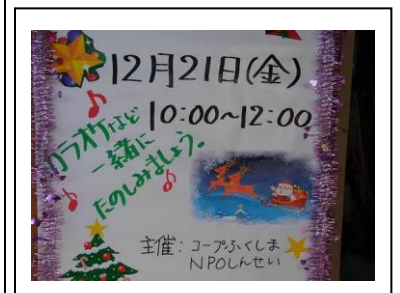 12月21日(金)
10:00~12:00
カラオケなど
一緒に
たのしみましょう。
主催:コープふくしま
NPOしんせい